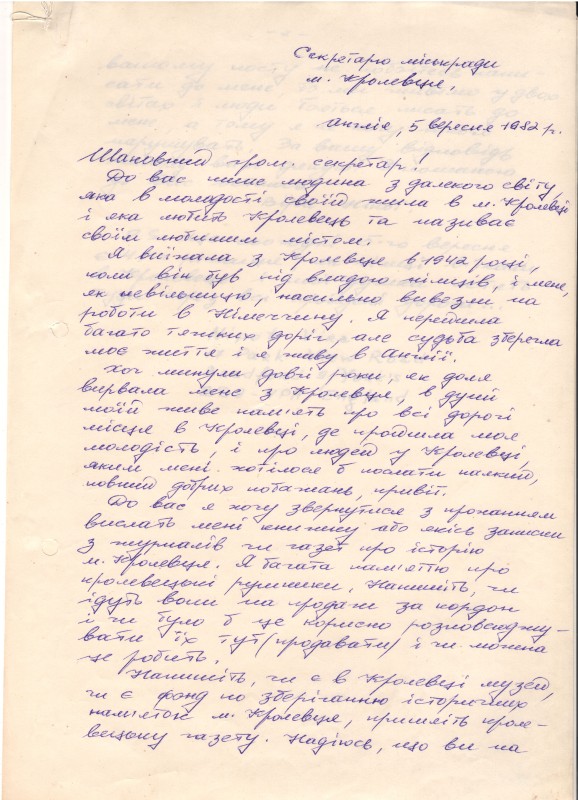 Секретарю міськради
м. Кролевце,
Англія, 5 вересня 1982 р.
Шановний гром. секретар!
До вас пише людина з далекого світу,
яка в молодості своїй жила в м. Кролевці
і яка любить Кролевець та називає
своїм любимим містом.
Я виїхала з Кролевце в 1942 році,
коли він був під владою німців, і мене,
як невільницю, насильно вивезли на
роботи в Німеччину. Я перейшла
багато тяжких доріг, але судьба зберегла
моє життя і я живу в Англії.
Хоч минули довгі роки, як доля
вирвала мене з Кролевця, в душі
моїй живе пам'ять про всі дорогі
місця в Кролевці, де пройшла моя
молодість, і про людей у Кролевці,
яким мені хотілося б послати палкий,
повний добрих побажань, привіт.
До вас я хочу звернутися з проханням
вислать мені книжку або якісь записки
з журналів чи газет про історію
м. Кролевця. Я багата пам'яттю про
кролевецькі рушники. Напишіть, чи
ідуть вони на продаж за кордон
і чи було б це корисно розповсюджу-
вати їх тут (продавати) і чи можна
це робить.
Напишіть, чи є в Кролевці музей,
чи є фонд по зберіганню історичних
пам'яток м. Кролевця, пришліть кроле-
вецьку газету. Надіюсь, що ви на